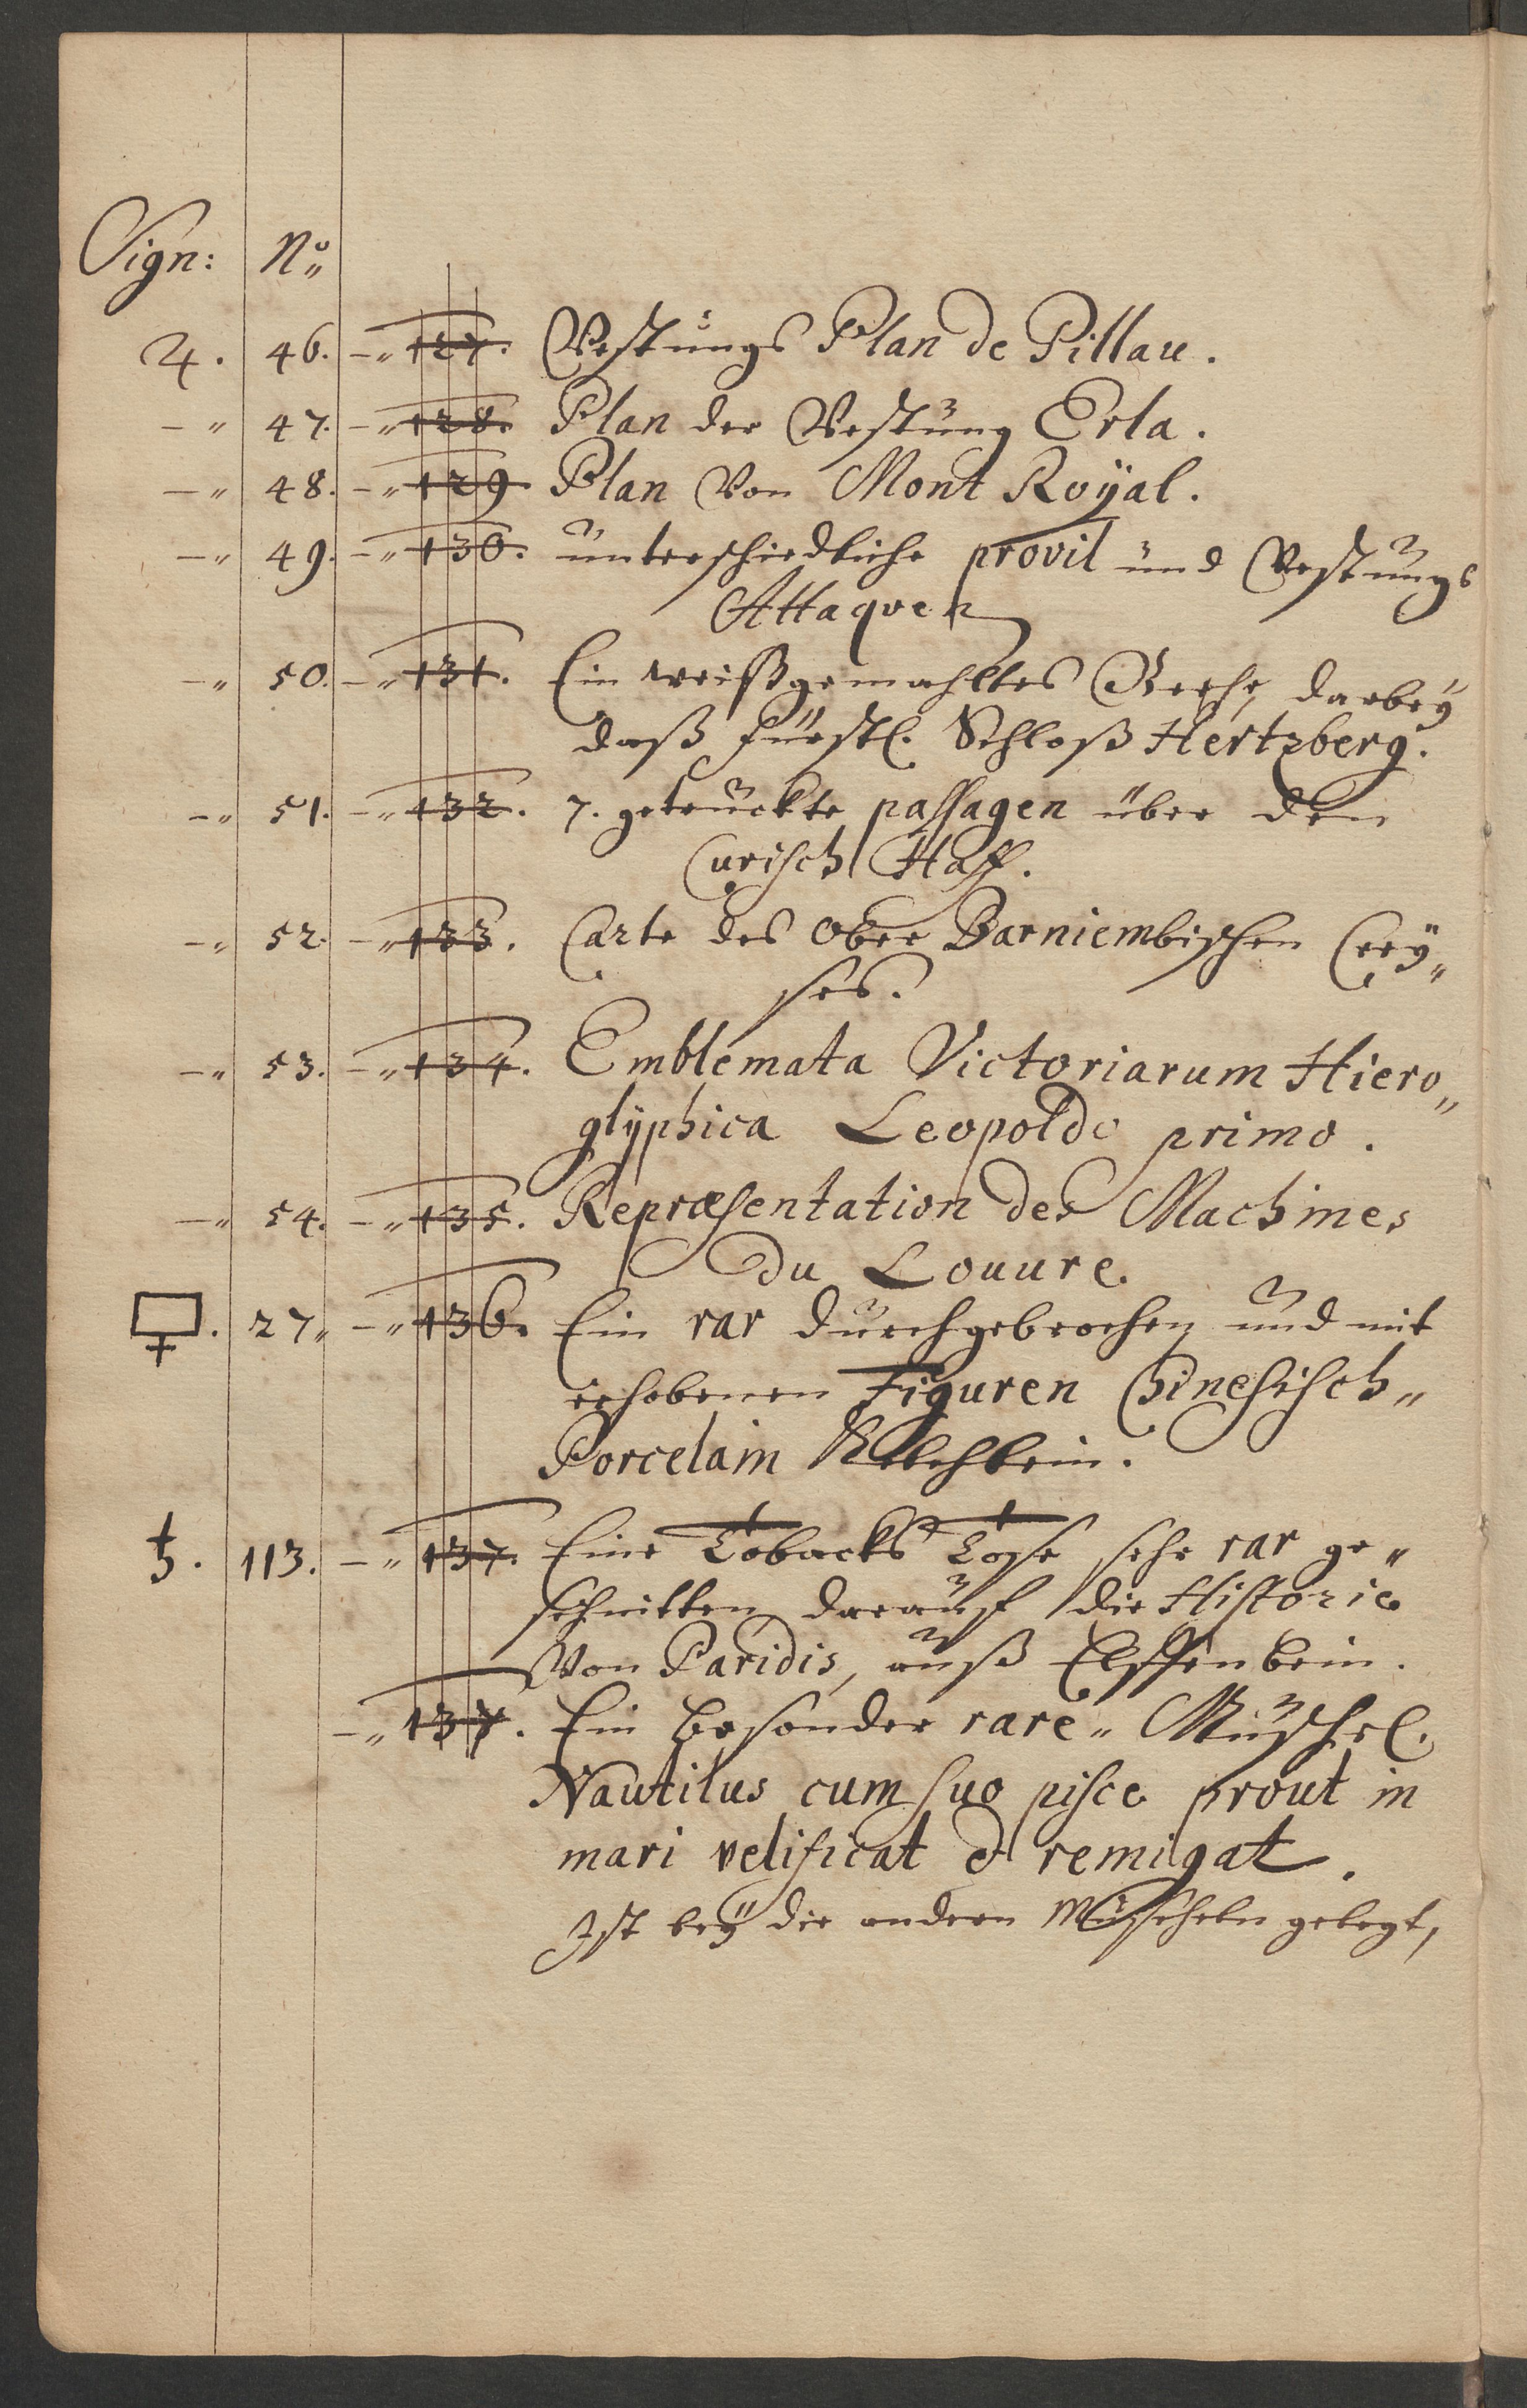 Sign: No
4. 46. -" 127. Vestungs Plan de Pillau.
-" 47. -" 128. Plan der Vestung Erla.
-" 48. -" 129. Plan Von Mont Royal.
-" 49. -" 130. unterschiedliche provil und Vestungs
Attaqven
-" 50. -" 131. Ein weißgemahltes Reehe, darbeÿ
daß fürstl. Schloß Hertzberg.
-" 51. -" 132. 7. getruckte passagen über den
Curisch Haff.
-" 52. -" 133. Carte des Ober Barniembischen Creÿ"
ses.
-" 53. -" 134. Emblemata Victoriarum Hiero"
glÿphica Leopoldo primo.
-" 54. -" 135. Repræsentation des Machines
du Louure.
□♀. 27" -" 136. Ein rar durchgebrochen und mit
erhobenen Figuren Chinesisch"
Porcelain Kelchlein.
♄. 113. -" 137. Eine Tobacks Tose sehr rar ge"
schnitten darauf die Historie
Von Paridis, auß Elffenbein.
-" 137. Ein besonder rare" Muschel.
Nautilus cum suo pisce prout in
mari velificat et remigat.
Ist beÿ die andern Muscheln gelegt,